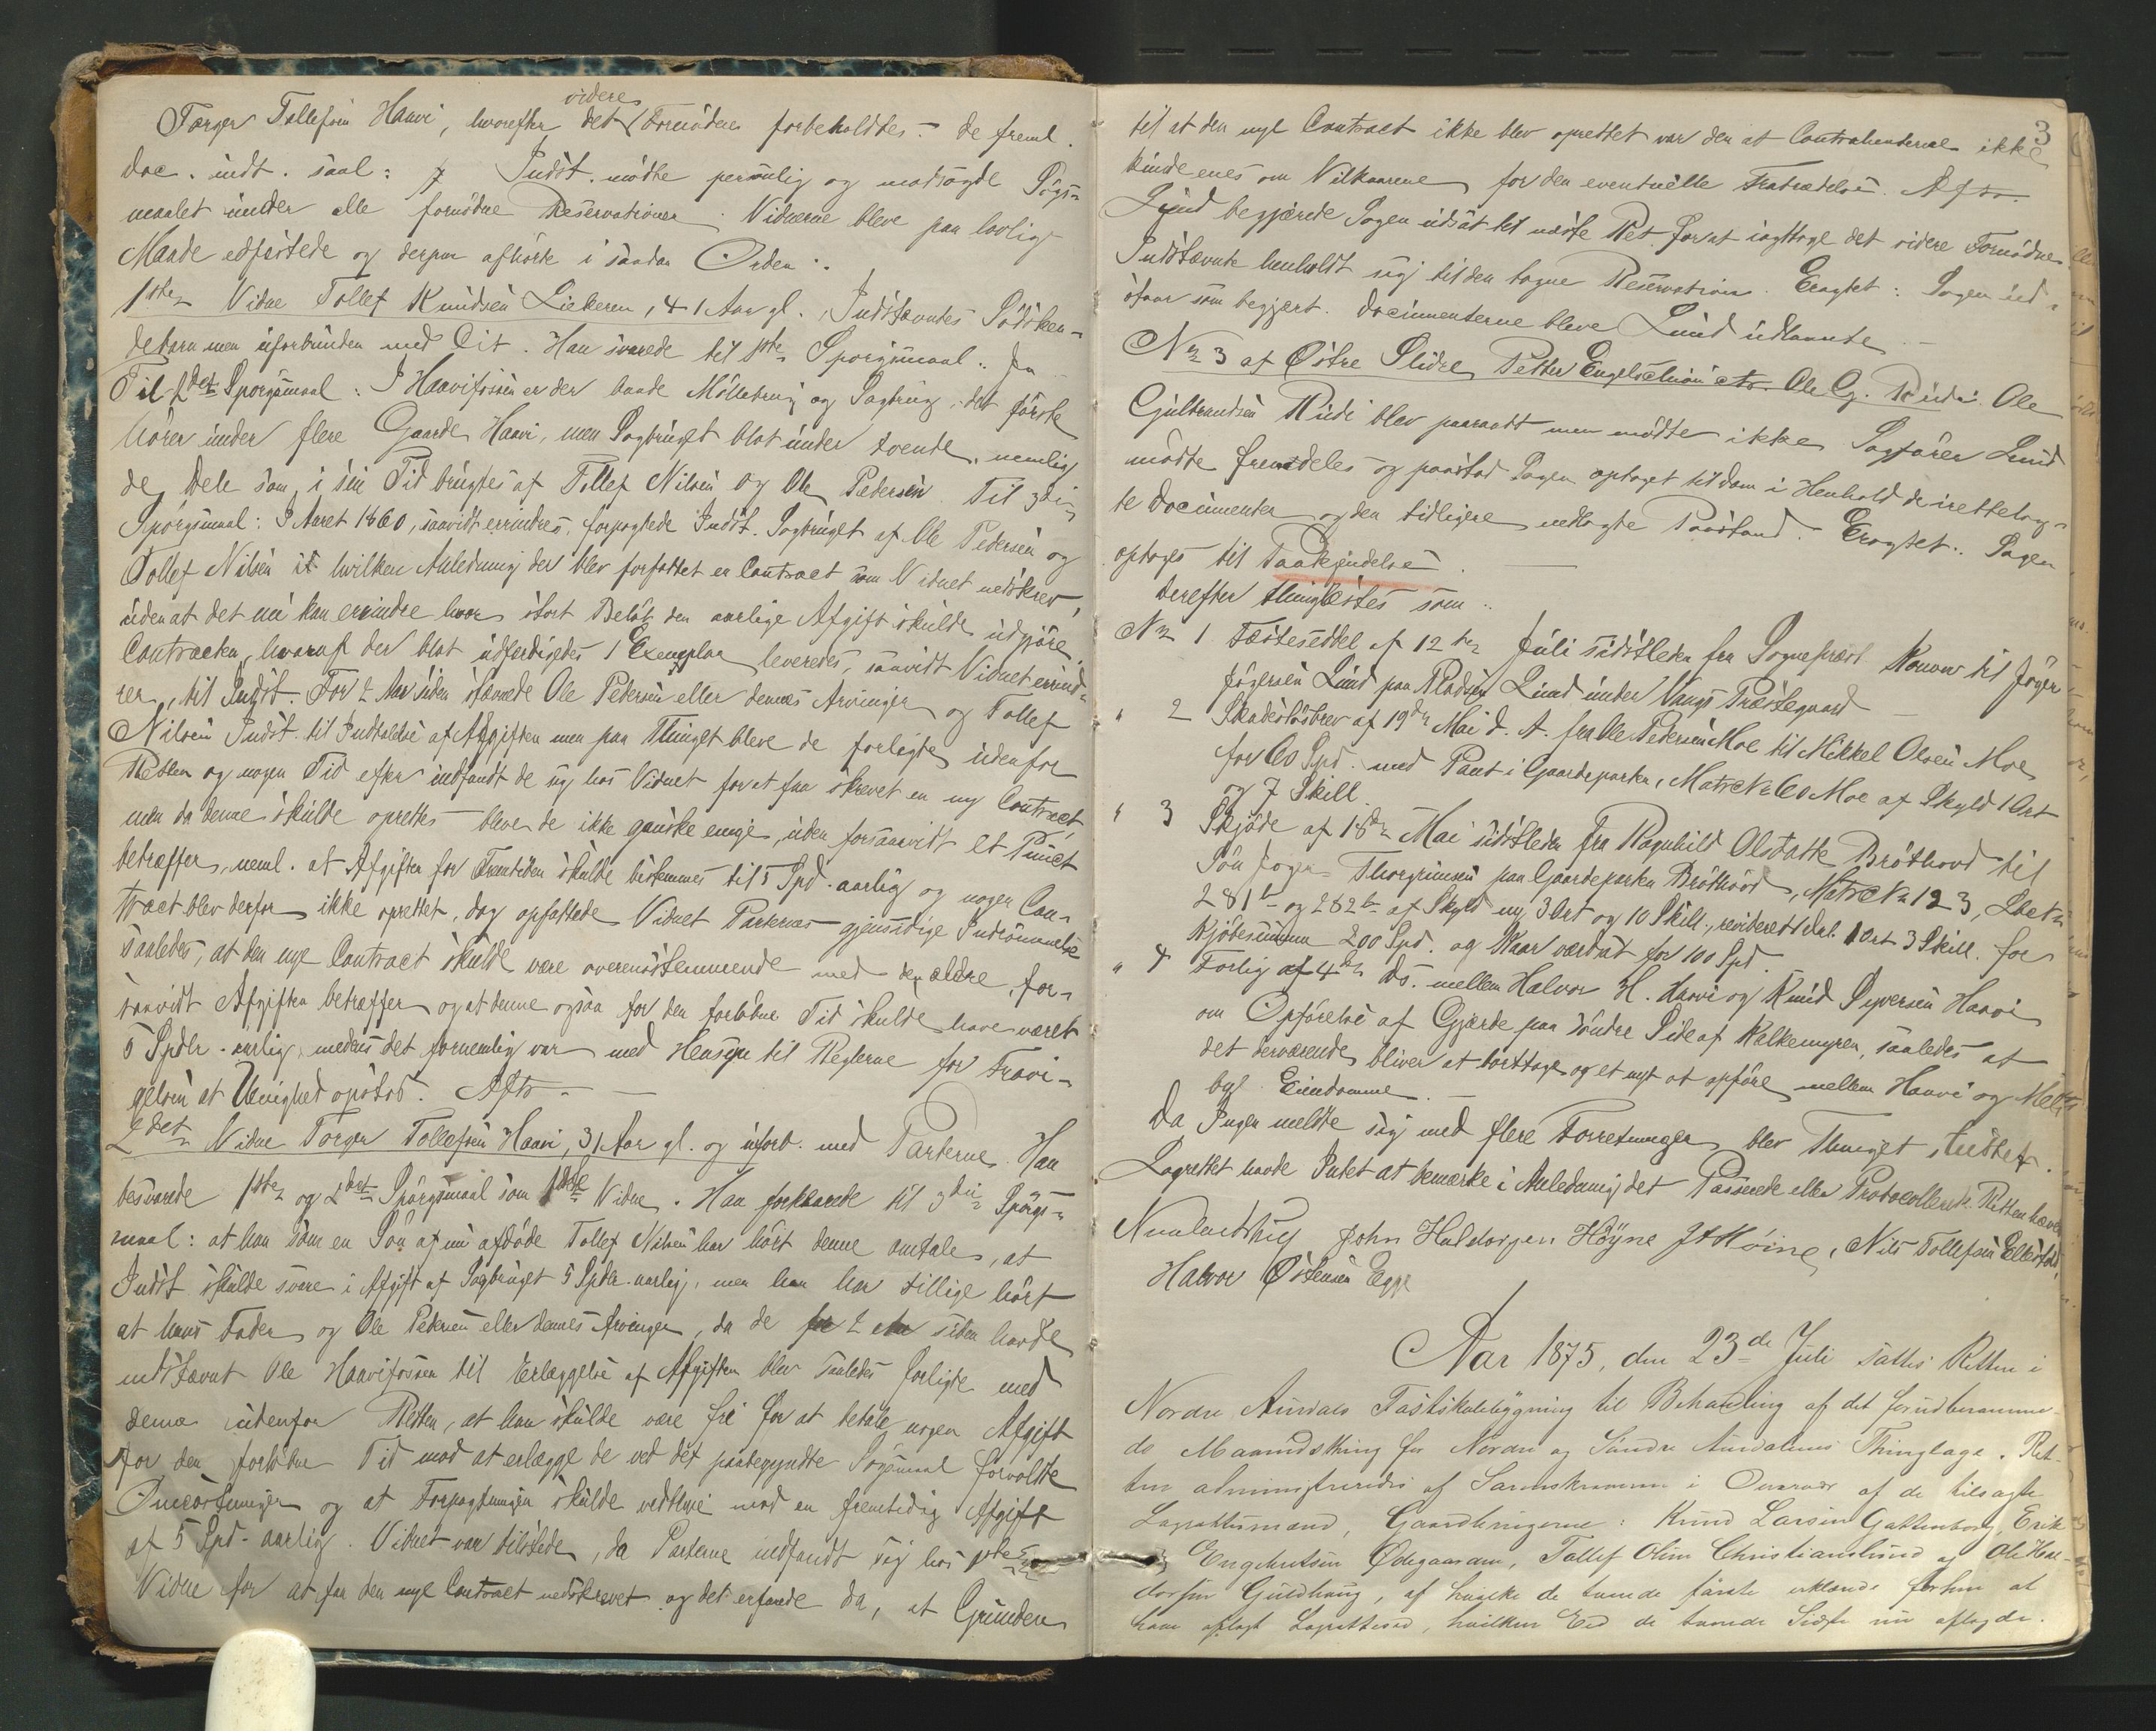 Torger Tollefsen Haavi, hvorefter det videre Fornødne forbeholdtes. De freml.
Doc. indt. saal: Indst. mødte personlig og modsagde Søgs-
maalet under alle fornødne Reservationer. Vidnerne bleve paa lovlig
Maade edfæstede og derpaa afhørte i saadan Orden:
1ste Vidne Tollef Knudsen Liekeren, 41 Aar gl. Indstævntes Södsken-
debarn men uforbunden med Cit. Han svarede til 1ste Sporgsmaal: Ja
Til 2det Sporgsmaal: I Haavifossen er der baade Möllebrug og Sagbrug, det første
hörer under flere Gaarde Haavi, men Sagbruget blot under tvende, nemlig
de Dele som i sin Tid brugtes af Tollef Nilsen og Ole Pedersen. Til 3die
Spörgsmaal: I Aaret 1860, saavidt errindres, forpagtede Indst. Sagbruget af Ole Pedersen og
Tollef Nilsen i hvilken Anledning der blev forfattet en Contract som Vidnet nedskrev,
uden at det nu kan errindre hvor stort Beløb den aarlige Afgift skulde udgjöre.
Contracten, hvoraf der blot udferdigedes 1 Exemplar leveredes, saavidt Vidnet errind-
rer, til Indst. For 2 Aar siden stævnede Ole Pedersen eller dennes Arvinger og Tollef
Nilsen Indst. til Indtalelse af Afgiften men paa Thinget bleve de forligte udenfor
Retten og nogen Tid efter indfandt de sig hos Vidnet for at faa skrevet en ny Contract,
men da denne skulde oprettes bleve de ikke ganske enige, uden forsaavidt et Punct
betræffer, neml. at Afgiften for Fremtiden skulde bestemmes til 5 Spd. aarlig og nogen Con-
tract blev derfor ikke oprettet, dog opfattede Vidnet Parternes gjensidige Indrömmelse
saaledes, at den nye Contract skulde være overensstemmende med den ældre, for-
saavidt Afgiften betræffer og at denne ogsaa for den forløbne Tid skulde have været
5 Spdlr. aarlig, medens det fornemlig var med Hensyn til Reglerne for Fravi-
gelsen at Uenighed opstod. Aftr.
2det Vidne Torger Tollefsen Haavi, 31 Aar gl. og uforb. med Parterne. Han
besvarede 1ste og 2det Spörgsmaal som 1ste Vidne. Han forklarede til 3die Spörgs-
maal: at han som en Sön af nu afdöde Tollef Nilsen har hört denne omtale, at
Indst skulde svare i Afgift af Sagbruget 5 Spdlr. aarlig, men han har tillige hört
at hans Fader og Ole Pedersen eller dennes Arvinger, da de for 2 Aar siden havde
indstævnt Ole Haavifossen til Erlæggelse af Afgiften blev saaledes forligte med
denne udenfor Retten, at han skulde være fri for at betale nogen Afgift
for den forløbne Tid mod at erlægge de ved det paabegyndte Søgsmaal forvoldte
Omcostninger og at Forpagtningen skulde vedblive mod en fremtidig Afgift
af 5 Spd. aarlig. Vidnet var tilstede, da Parterne indfandt sig hos 1ste
Vidne for at faa den nye Contract nedskrevet og det erfarede da, at Grunden
3
til at den nye Contract ikke blev oprettet var den at Contrahenterne ikke
kunde enes om Vilkaarene for den eventuelle Fratrædelse. Aftr.
Lund begjærede Sagen udsat til næste Ret for at iagttage det videre Fornødne.
Indstævnte henholdt sig til den tagne Reservation. Eragtet: Sagen ud-
staar som begjært. Documenterne bleve Lund udlaante.
No 3 af Østre Slidre, Petter Engebrethsen ctr. Ole G. Rudi. Ole
Gulbrandsen Rudi blev paaraabt men mødte ikke. Sagfører Lund
mødte fremdeles og paastod Sagen optaget til Dom i Henhold de irettelag-
te Documenter og den tidligere nedlagte Paastand. Eragtet: Sagen
optages til Paakjendelse.
Derefter thinglæstes som:
No 1 Fæsteseddel af 12te Juli sidstleden fra Sognepræst Konow til Jöger
Jögersen Lund paa Pladsen Lund under Vangs Præstegaard
" 2 Skadeslösbrev af 19de Mai d. A. fra Ole Pedersen Moe til Mikkel Olsen Moe
for 60 Spd. med Pant i Gaardeparten, Matr. No 60 Moe af Skyld 1 Ort
og 7 Skill.
" 3 Skjöde af 18de Mai sidstleden fra Ragnhild Olsdatter Bröthovd til
Sön Joger Thorgrimsen paa Gaardeparten Bröthovd, Matr. No 123, Löbe No
281b og 282b af Skyld ny 3 Ort og 10 Skill., revideret 1 Dal. 1 Ort 3 Skill. for
Kjöbesumma 200 Spd. og Kaar værdsat for 100 Spd.
" 4 Forlig af 4de Ds. mellem Halvor H. Haavi og Knud Syversen Haavi
om Opförelse af Gjerde paa söndre Side af Kalkemyren, saaledes at
det derværende bliver at borttage og et nyt at opföre mellem Haavi og
Eiendomme.
Da Ingen meldte sig med flere Forretninger blev Thinget sluttet.
Lagrettet havde Intet at bemærke i Anledning det Passerede eller Protocollen. Retten hævet
John Halvorsen Höyne, Nils Tollefsen Ellestad,
Halvor Östensen Egge
Aar 1875, den 23de Juli sattes Retten i
Nordre Aurdals Fastskolebygning til Behandling af det forudberamme-
de Maanedsthing for Nordre og Söndre Aurdalens Thinglage. Ret-
ten administreredes af Sorenskriveren i Overvær af de tilsagte
Lagrettesmænd, Gaardbrugerne: Knud Larsen Gattenborg, Erik
Engebretsen Ödegaarden, Tollef Olsen Christianslund og Ole Hal-
dorsen Guldhaug, af hvilke de tvende förste erklærede forhen at
have aflagt Lagrettesed, hvilken Eed de tvende Sidste nu aflagde.